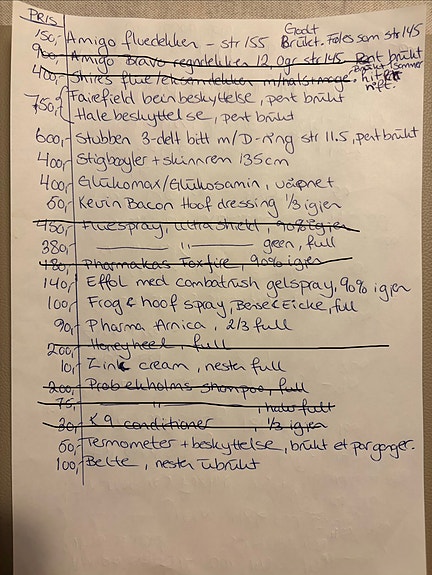 PRIS
150,- Amigo fluedekken - str 155 Godt Brukt. Føles som str 145
900,- Amigo Bravo regndekken 12 0gr str 145 Pent brukt
400,- Shires flue/eksemdekken m/hals+mage. Brukt 1 sommer
750,- Fairefield beinbeskyttelse, pent brukt
Hale beskyttelse, pent brukt
600,- Stubben 3-delt bitt m/D-ring str 11.5, pent brukt
400,- Stigbøyler + skinnrem 135cm
400,- Glukomax/Glukosamin, uåpnet
50,- Kevin Bacon Hoof dressing 1/3 igjen
450,- Fluespray, ultra shield, 90% igjen
380,- —— " —— green, full
180,- Pharmakas Foxfire, 90% igjen
140,- Effol med combatrush gelspray, 90% igjen
100,- Frog & hoof spray, Bense & Eicke, full
90,- Pharma Arnica, 2/3 full
200,- Honeyheel, full
10,- Zink cream, nesten full
200,- Prob ekholms shampoo, full
75,- " , halv full
30,- K9 conditioner, 1/3 igjen
50,- Termometer + beskyttelse, brukt et par ganger.
100,- Belte, nesten ubrukt